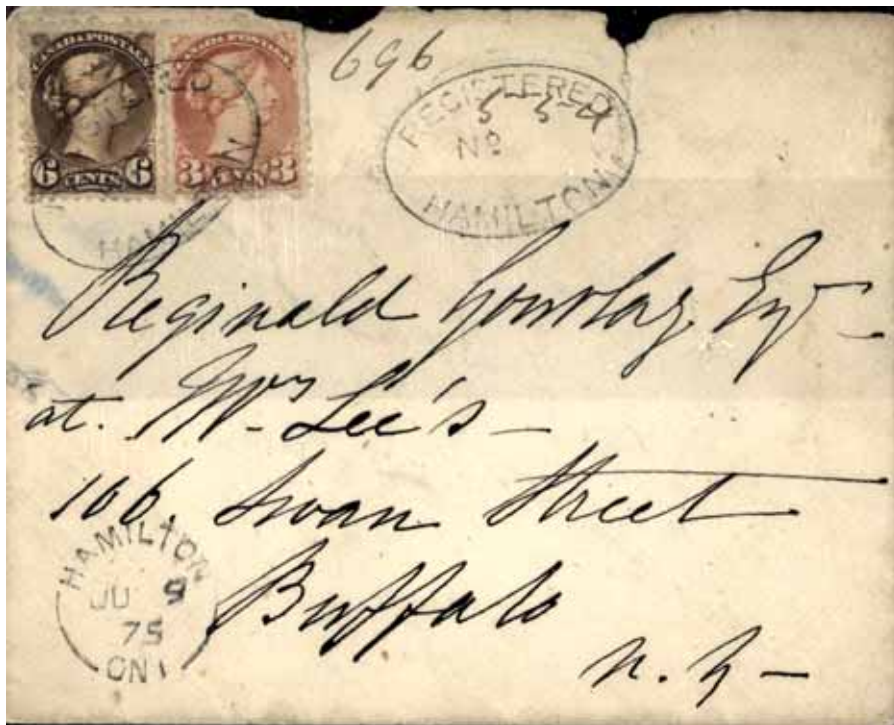 CANADA POSTAGE CANADA POSTAGE
6 CENTS 6 3 CENTS 3
696
REGISTERED
No
HAMILTON
HAMIL ON
Reginald Gourlay Esqr
at. Mrs Lee's —
106. Swan Street
Buffalo
N. Y —
HAMILTON
JU 9
75
ONT